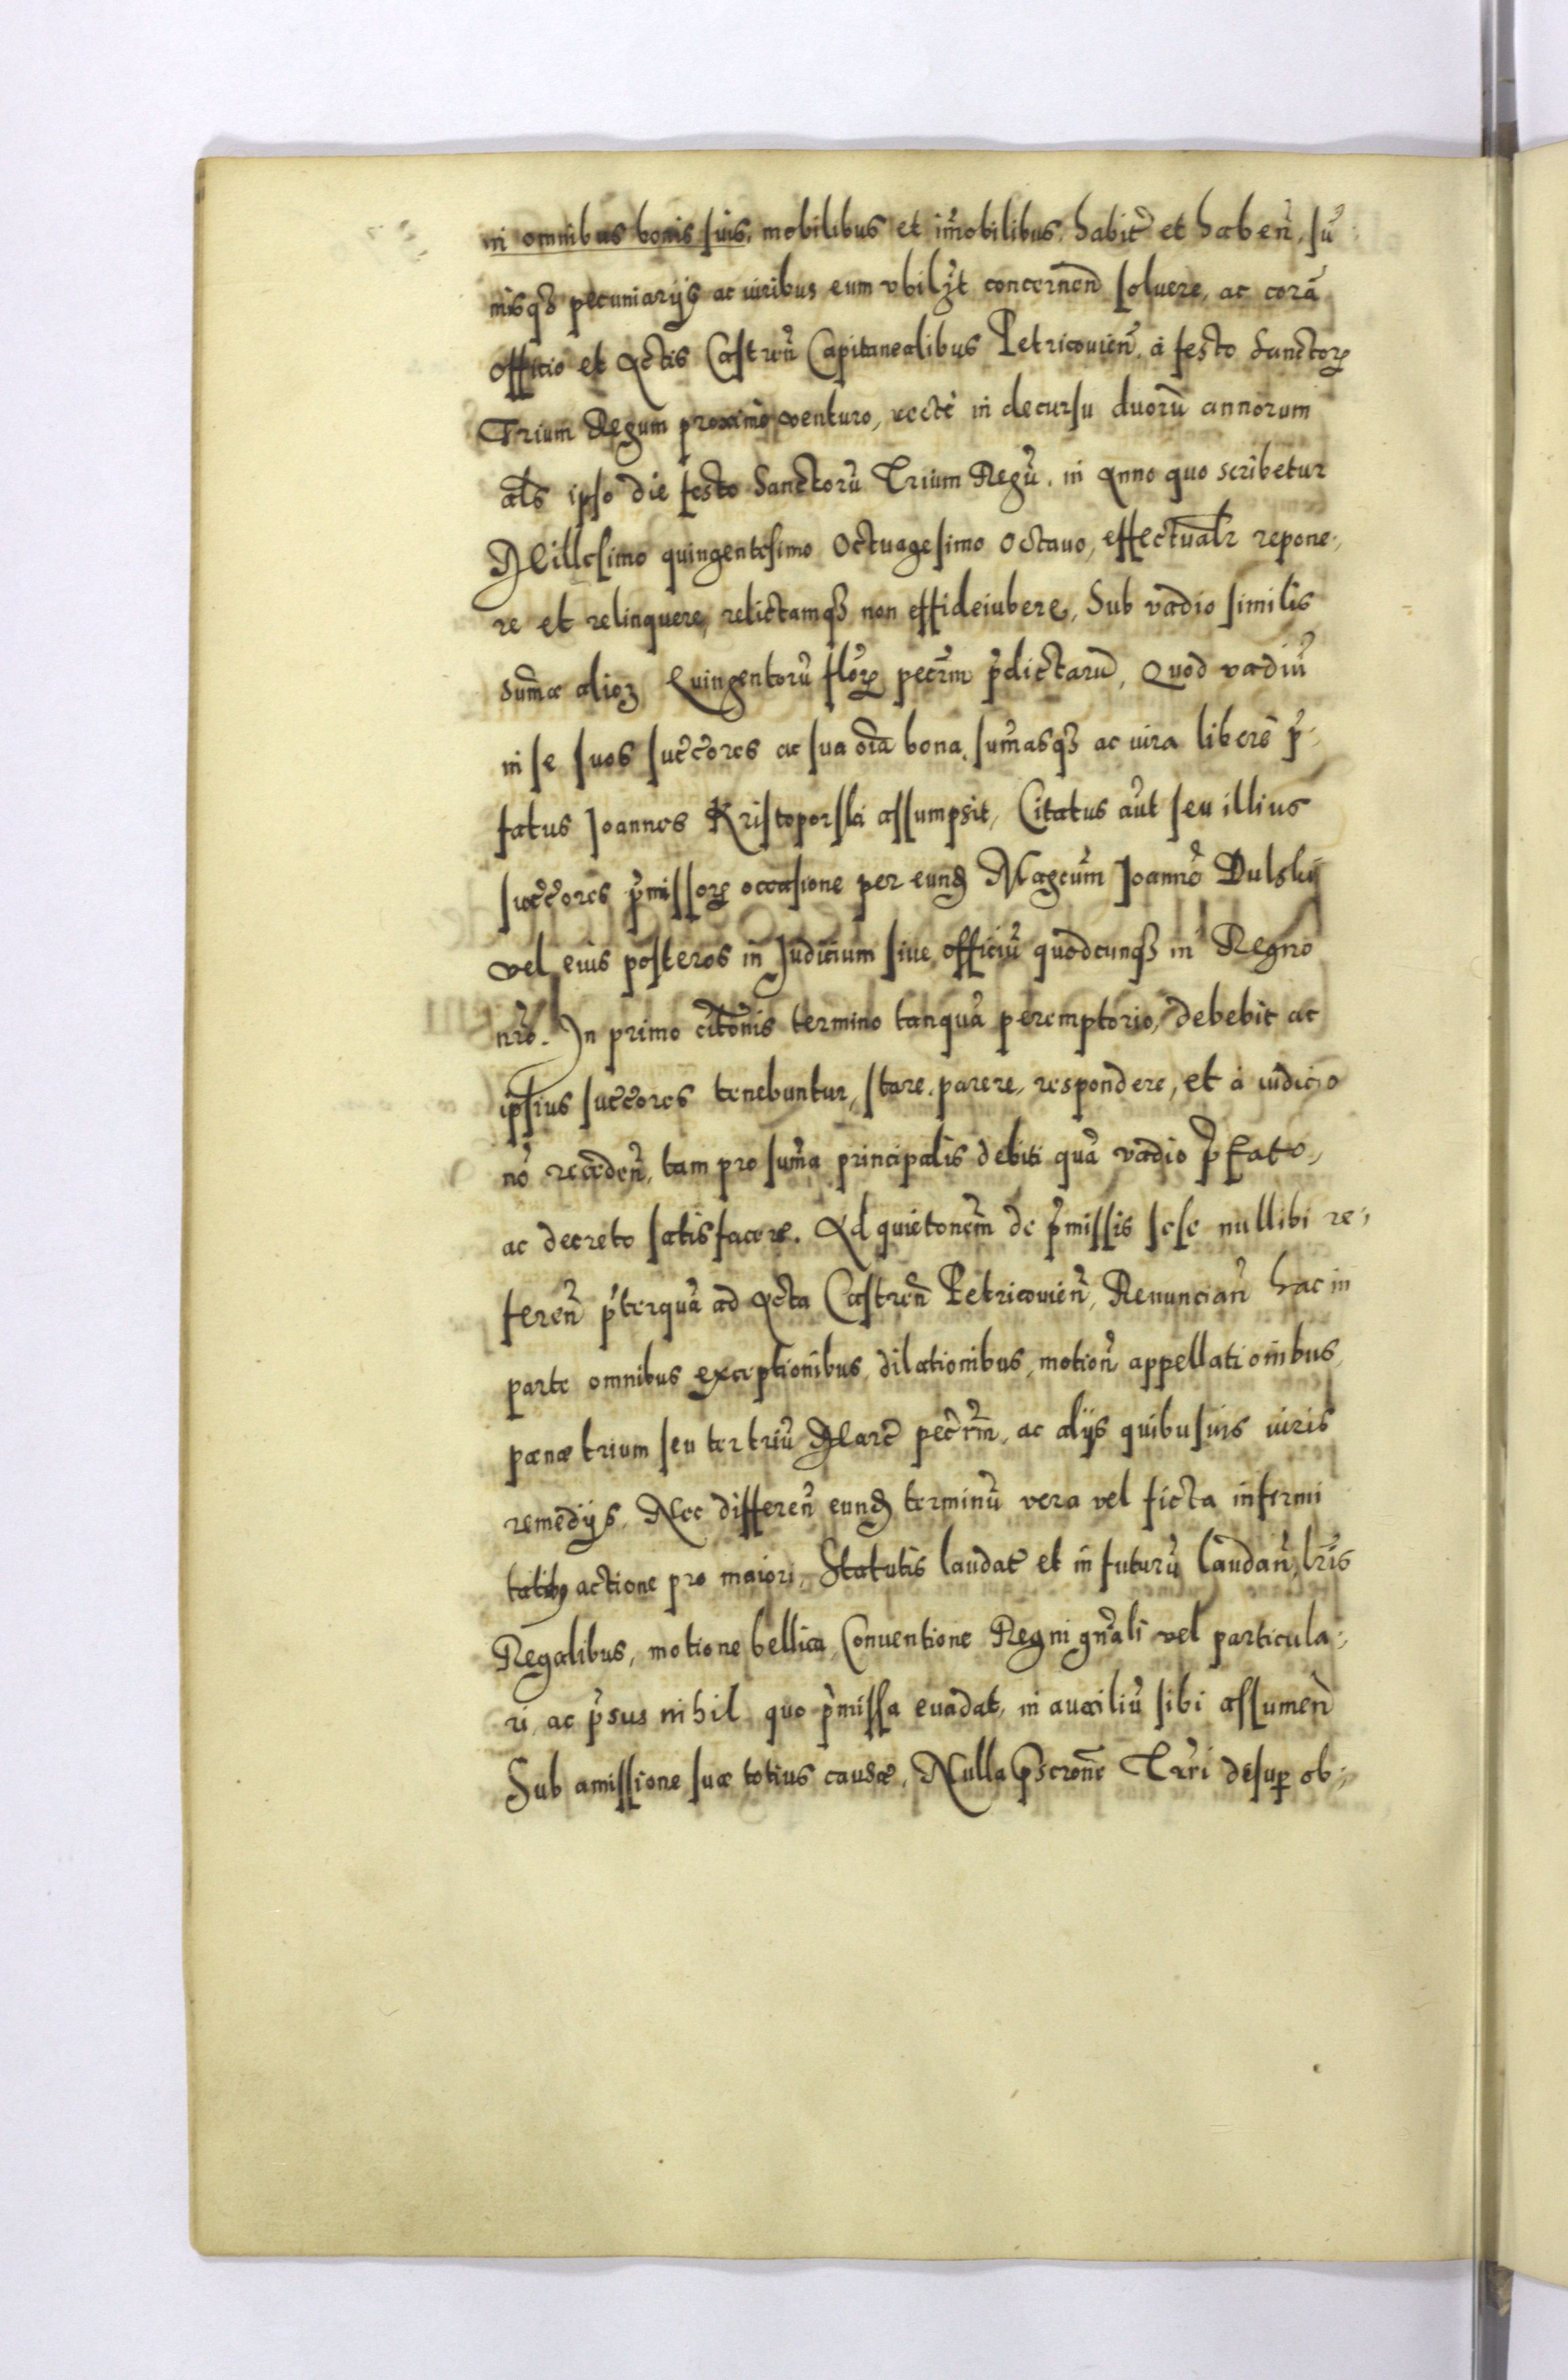 in omnibus bonis suis, mobilibus et im̃obilibus, habit̃ et haben̄, su
misq̃ pecuniarijs ac iuribus eum vbiliƺt concernen̄ soluere, ac corã
officio et Actis Castren̄ Capitanealibus Petricouien̄, à festo Sanctoꝝ
Trium Regum proximè venturo, rectè in decursu duorũ annorum
al̃s ipso die festo Sanctorũ Trium Regũ, in Anno quo scribetur
Millesimo quingentesimo Octuagesimo Octauo, effectual̃r repone-
re et relinquere, relictamqʒ non effideiubere, Sub vadio similis
sum̃æ alioꝝ Quingentorũ flor̃ꝝ pec̃rm p̃dictarũ, Quod vadiũ
in se suos suc̃c̃ores ac sua om̃a bona, sum̃asqʒ ac iura liberè p̃-
fatus Joannes Kristoporski assumpsit, Citatus aũt seu illius
suc̃c̃ores p̃missoꝝ occasione per eund̃ Mag̃cum Joannẽ Dulskij
vel eius posteros in Judicium siue officiũ quodcunqʒ in Regno
nr̃o. In primo cit̃onis termino tanquã peremptorio, debebit ac
ipsius suc̃c̃ores tenebuntur, stare, parere, respondere, et à iudicio
nõ receden̄, tam pro sum̃a principalis debiti quã vadio p̃fato,
ac decreto satisfacere. Ad quietonẽm de p̃missis sese nullibi re-
feren̄ p̃terquã ad Acta Castren̄ Petricouien̄, Renuncian̄ hac in
parte omnibus exceptionibus, dilationibus, motion̄ appellationibus,
pænæ trium seu ter triũ Marc̃ pec̃rm, ac alijs quibusuis iuris
remedijs. Nec differen̄ eund̃ terminũ vera vel ficta infirmi
tatibꝫ actione pro maiori, Statutis laudat̃ et in futurũ laudan̄, lr̃is
Regalibus, motione bellica, Conuentione Regni gn̄ali vel particula-
ri, ac p̃sus nihil quo p̃missa euadat, in auxiliũ sibi assumen̄
Sub amissione suæ totius causæ, Nulla p̃scr̃one Tr̃ri desuꝑ ob-